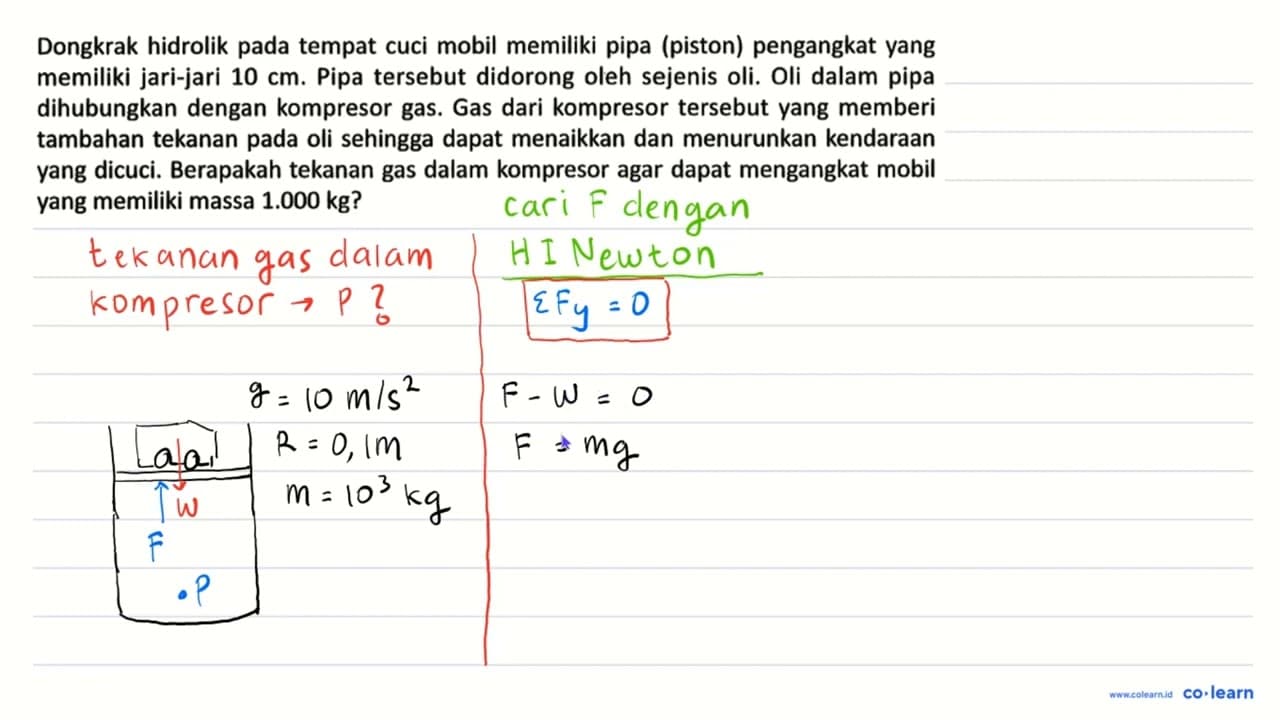 Dongkrak hidrolik pada tempat cuci mobil memiliki pipa (piston) pengangkat yang
memiliki jari-jari 10 cm. Pipa tersebut didorong oleh sejenis oli. Oli dalam pipa
dihubungkan dengan kompresor gas. Gas dari kompresor tersebut yang memberi
tambahan tekanan pada oli sehingga dapat menaikkan dan menurunkan kendaraan
yang dicuci. Berapakah tekanan gas dalam kompresor agar dapat mengangkat mobil
yang memiliki massa 1.000 kg?
tekanan gas dalam
kompresor → P ?
g = 10 m/s²
R = 0,1m
m = 10³ kg
W
F
.P
cari F dengan
H I Newton
ΣFy = 0
F - W = 0
F = mg
www.colearn.id co·learn